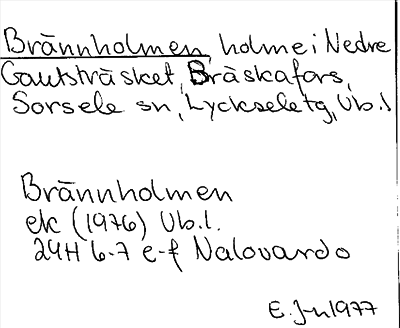 Brännholmen, holme i Nedre
Gautsträsket, Bräskafors,
Sorsele sn, Lycksele tg, Vb.l
Brännholmen
ek (1976) Vb.l.
24H 6-7 e-f Nalovardo
E. J-n 1977